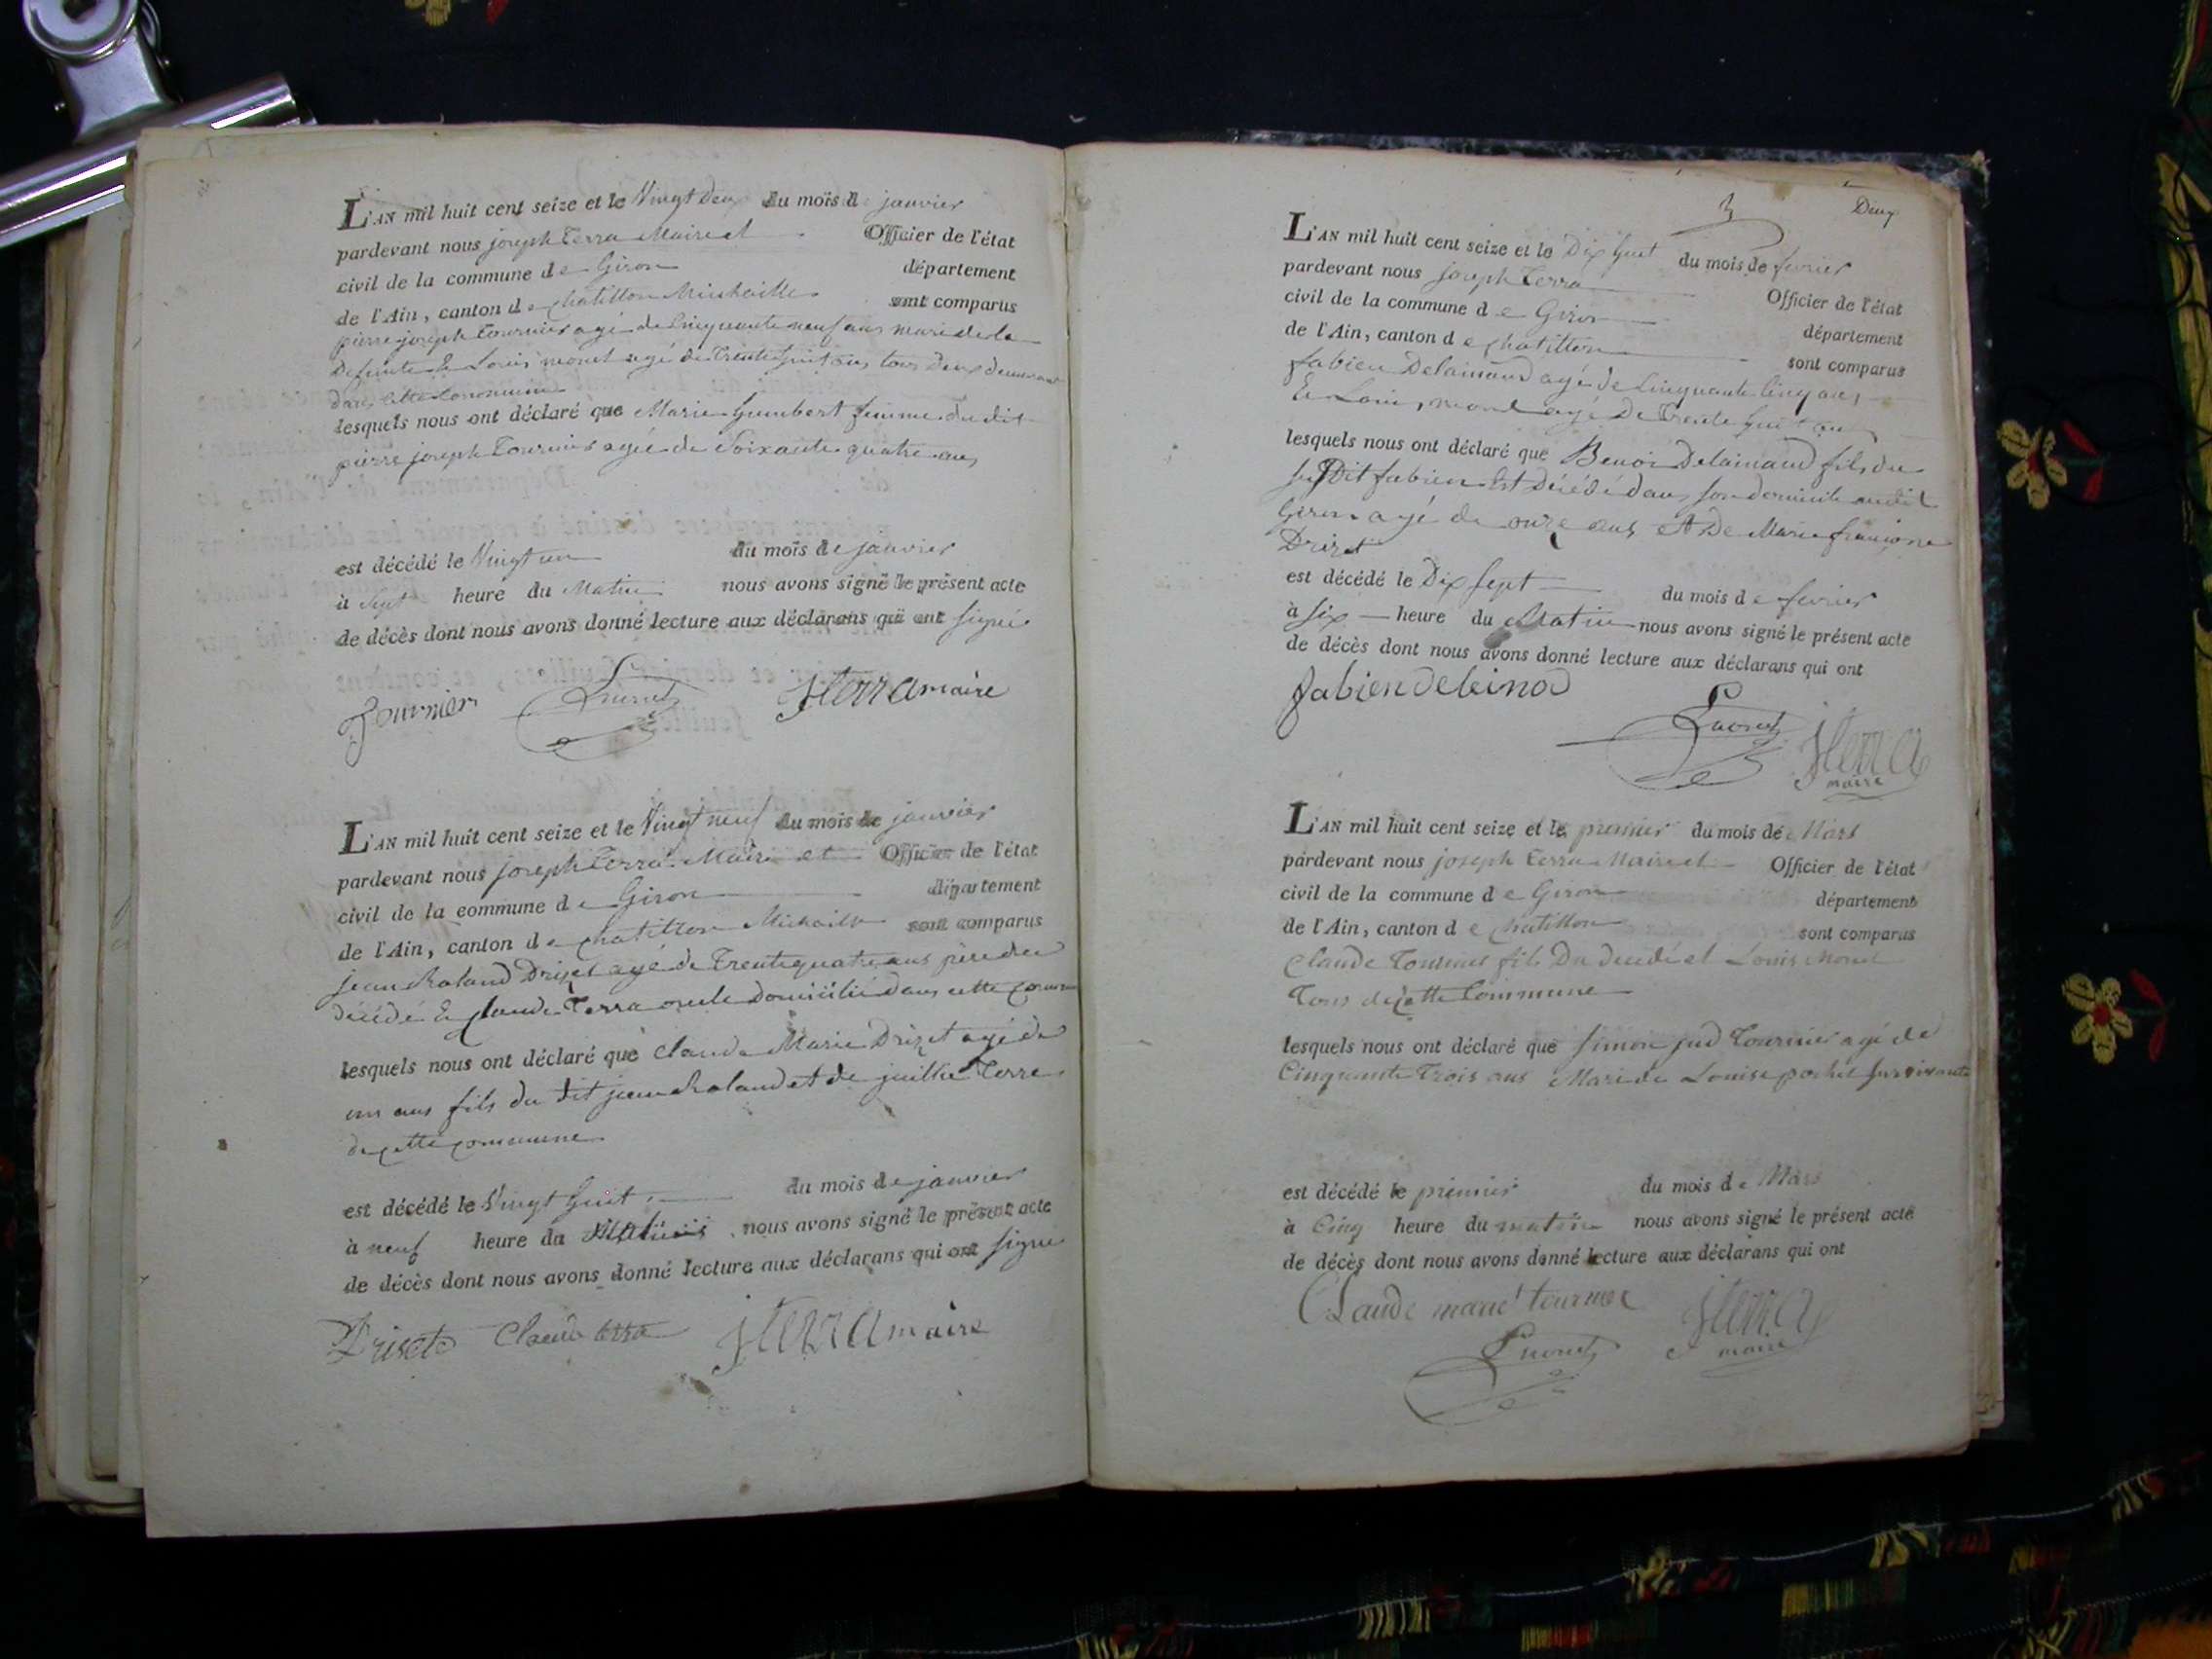 L'AN mil huit cent seize et le Vingt Deux du mois de janvier
pardevant nous joseph Terra Maire et Officier de l'état
civil de la commune de Giron département
de l'Ain, canton de chatillon Michaille sont comparus
pierre joseph Tournier agé de Cinquante neuf ans mari de la
Defunte & Louis monet agé de Trente huit ans tous Deux demeurant
dans cette Commune
lesquels nous ont déclaré que Marie humbert femme du dit
pierre joseph Tournier agée de Soixante quatre ans
est décédé le Vingt un du mois de janvier
à Sept heure du Matin nous avons signé le présent acte
de décès dont nous avons donné lecture aux déclarans qui ont signé
Tournier Lmonet jterra maire
L'AN mil huit cent seize et le Vingt neuf du mois de janvier
pardevant nous joseph Terra Maire et Officier de l'état
civil de la commune de Giron département
de l'Ain, canton de chatillon Michaille sont comparus
jean Roland Drizet agé de Trente quatre ans père du
décédé & claude Terra oncle domicilié dans cette comm
lesquels nous ont déclaré que Claude Marie Drizet agé de
un ans fils du dit jean Roland et de Terra
de cette commune
est décédé le Vingt huit du mois de janvier
à neuf heure du Matin nous avons signé le présent acte
de décès dont nous avons donné lecture aux déclarans qui ont signé
Driset Claude terra jterra maire
Deux
L'AN mil huit cent seize et le Dix huit du mois de fevrier
pardevant nous joseph Terra Officier de l'état
civil de la commune de Giron département
de l'Ain, canton de chatillon sont comparus
fabien Delainaud agé de Cinquante Cinq ans
& Louis monet agé De Trente huit ans
lesquels nous ont déclaré que Benoi Delainaud fils du
susDit fabien Est Décédé dans son domicile audit
Giron agé de onze ans et De Marie francoise
Drizet
est décédé le Dix sept du mois de fevrier
à six heure du Matin nous avons signé le présent acte
de décès dont nous avons donné lecture aux déclarans qui ont
fabien deleinod
Lmonet jterra
maire
L'AN mil huit cent seize et le premier du mois de Mars
pardevant nous joseph terra Maire et Officier de l'état
civil de la commune de Giron département
de l'Ain, canton de chatillon sont comparus
Claude Tournier fils Du decedé et Louis Monet
Tous de cette Commune
lesquels nous ont déclaré que Simon jud Tournier agé de
Cinquante Trois ans Mari de Louise survivante
est décédé le premier du mois de Mars
à Cinq heure du matin nous avons signé le présent acte
de décès dont nous avons donné lecture aux déclarans qui ont
Claude marie tournier jterra
Lmonet maire